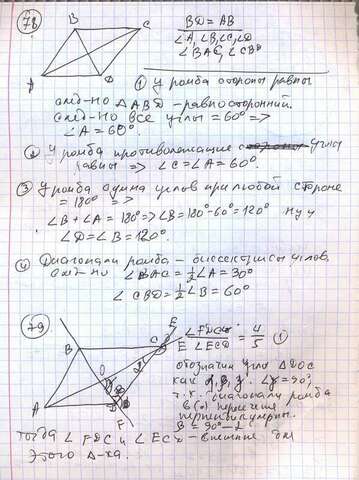 78
B C
A D
BD = AB
∠A, ∠B, ∠C, ∠D
∠BAC, ∠CBD
① У ромба стороны равны
след-но △ABD - равносторонний.
след-но все углы = 60° =>
∠A = 60°.
② У ромба противолежащие углы
равны => ∠C = ∠A = 60°.
③ У ромба сумма углов при любой стороне
= 180° =>
∠B + ∠A = 180° => ∠B = 180° - 60° = 120° ну и
∠D = ∠B = 120°.
④ Диагонали ромба - биссектрисы углов.
след-но ∠BAC = ½∠A = 30°
∠CBD = ½∠B = 60°
79
B C E
A O D
F
∠FDC / ∠ECD = 4/5 ①
обозначим углы △DOC
как α, β, γ. ∠γ = 90°,
т.к. диагонали ромба
в (·) пересечения
перпендикулярны.
β = 90° - α
тогда ∠FDC и ∠ECD - внешние для
этого △-ка.